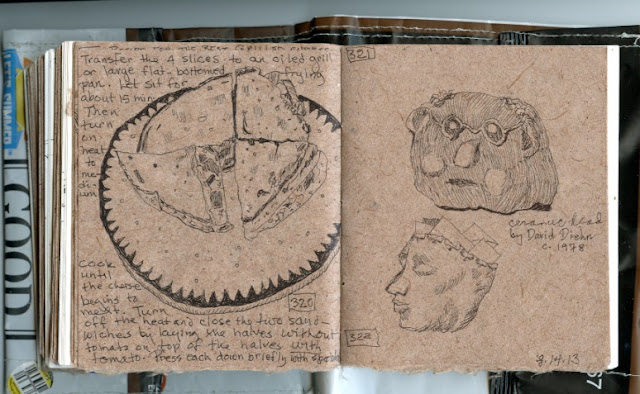 Transfer the 4 slices to an oiled grill
or large flat. bottomed frying
pan. Let sit for
about 15 min
Then
turn
on
heat
to
me-
di-
um
Cook
until
the cheese
begins to
melt. Turn
off the heat and close the two sand-
wiches by laying the halves without
tomato on top of the halves with
tomato. Press each down briefly with
320
321
ceramic head
by David Diehn
c. 1978
322
8.14.13
GOOD